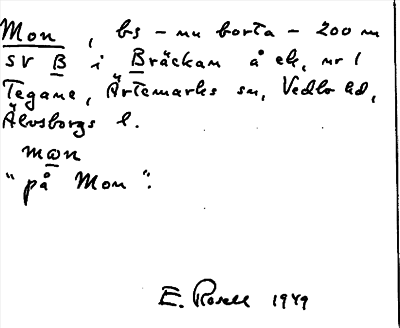 Mon, bs – nu borta – 200 m
SV B i Bräckan å ek, nr 1
Tegane, Ärtemarks sn, Vedbo hd,
Älvsborgs l.
mɷn
"på Mon".
E. Rosell 1949